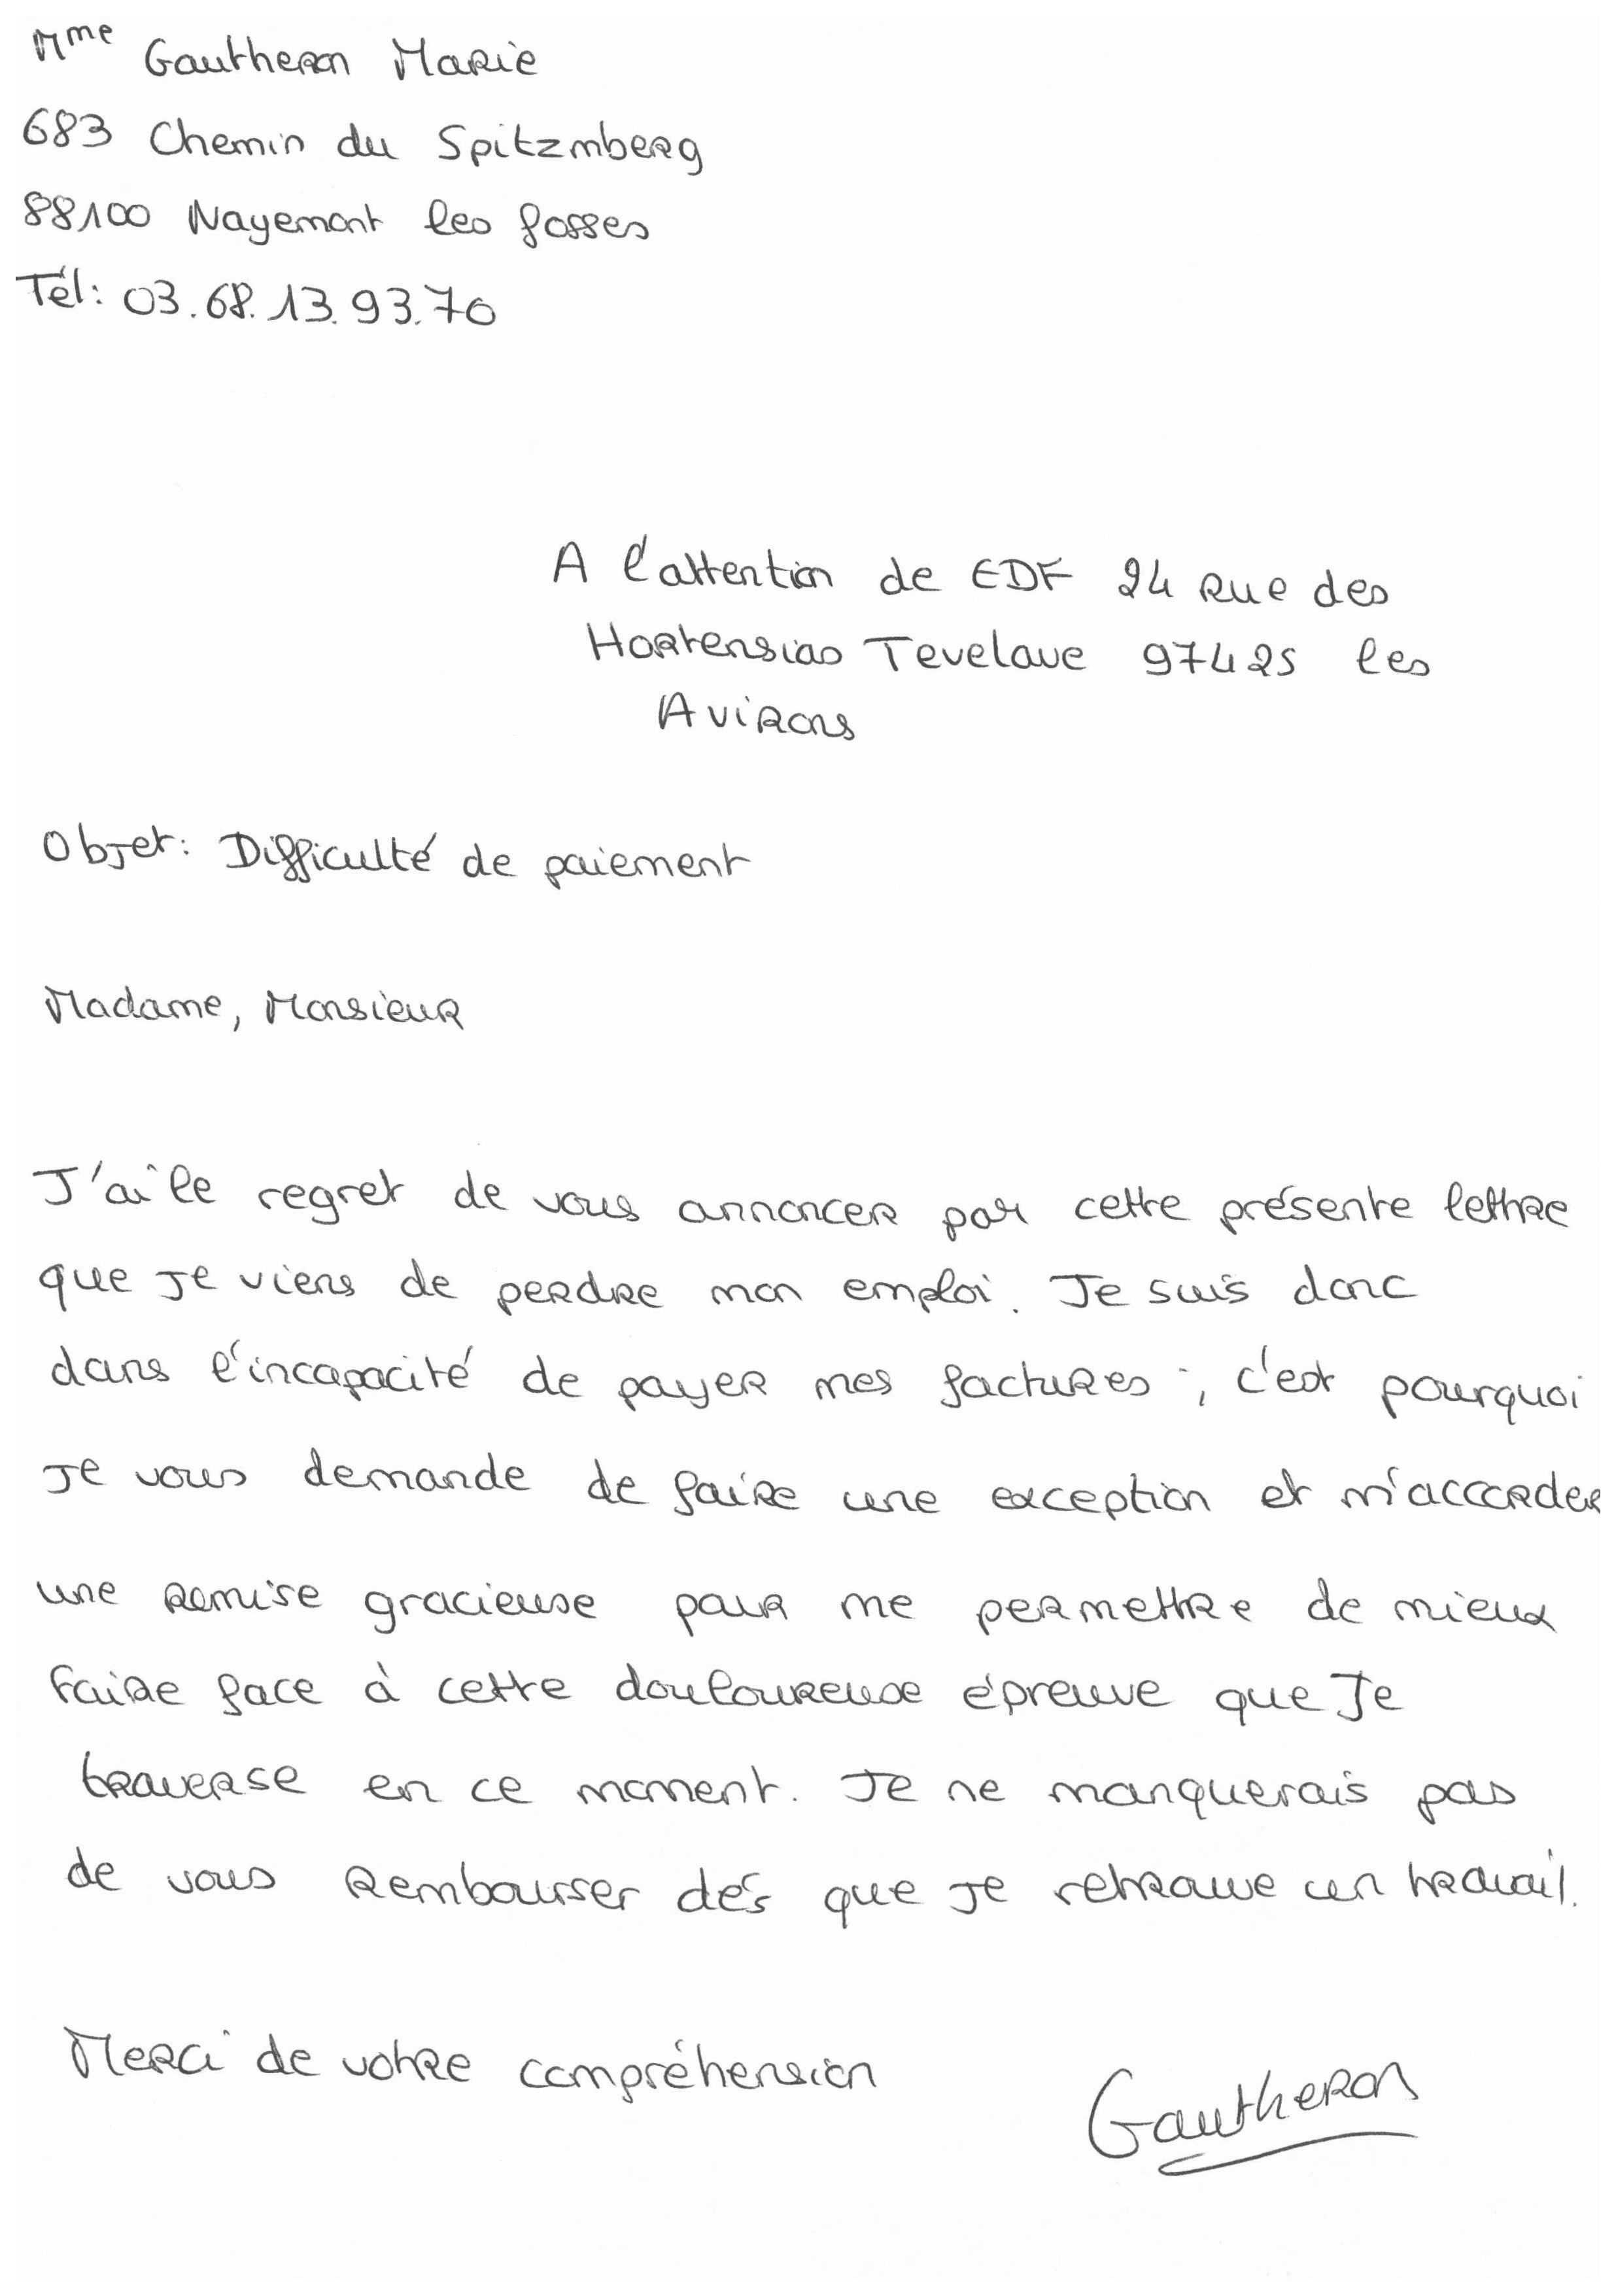 Mme Gautheron Marie
683 Chemin du Spitzmberg
88100 Nayemont les fosses
Tél: 03.68.13.93.70
A l'attention de EDF 24 Rue des
Hortensias Tevelave 97425 les
Avirons
Objet: Difficulté de paiement
Madame, Monsieur
J'ai le regret de vous annoncer par cette présente lettre
que je viens de perdre mon emploi. Je suis donc
dans l'incapacité de payer mes factures ; c'est pourquoi
je vous demande de faire une exception et m'accorder
une remise gracieuse pour me permettre de mieux
faire face à cette douloureuse épreuve que je
traverse en ce moment. Je ne manquerais pas
de vous rembourser dés que je retrouve un travail.
Merci de votre compréhension
Gautheron